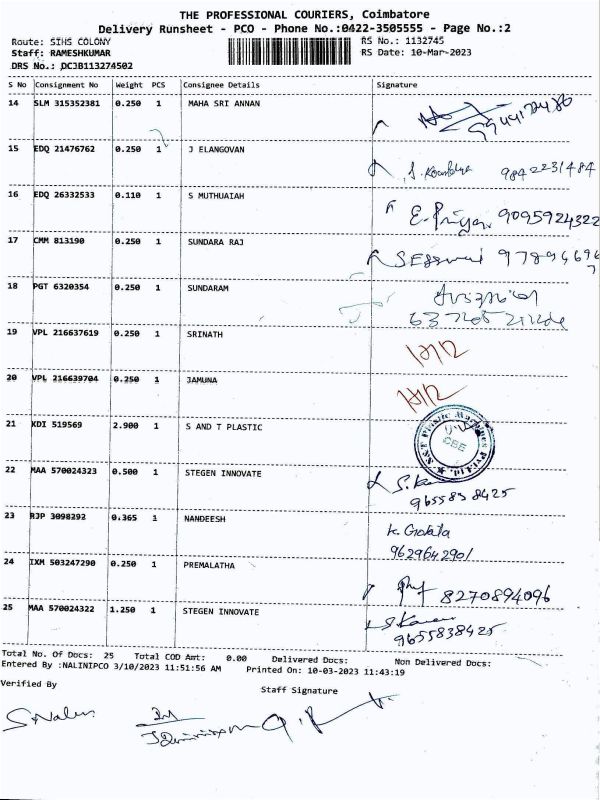 THE PROFESSIONAL COURIERS, Coimbatore
Delivery Runsheet - PCO - Phone No.:0422-3505555 - Page No.:2
Route: SIHS COLONY
RS No.: 1132745
Staff: RAMESHKUMAR
RS Date: 10-Mar-2023
DRS No.: DCJB113274502
S No Consignment No Weight PCS Consignee Details Signature
14 SLM 315352381 0.250 1 MAHA SRI ANNAN
15 EDQ 21476762 0.250 1 J ELANGOVAN 9842231484
16 EDQ 26332533 0.110 1 S MUTHUAIAH E. Priya 9095924322
17 CMM 813190 0.250 1 SUNDARA RAJ
18 PGT 6320354 0.250 1 SUNDARAM
19 VPL 216637619 0.250 1 SRINATH
20 VPL 216639704 0.250 1 JAMUNA
21 KDI 519569 2.900 1 S AND T PLASTIC
22 MAA 570024323 0.500 1 STEGEN INNOVATE
9655838425
23 RJP 3098392 0.365 1 NANDEESH
9629642901
24 IXM 503247290 0.250 1 PREMALATHA 8270894096
25 MAA 570024322 1.250 1 STEGEN INNOVATE
9655838425
Total No. Of Docs: 25 Total COD Amt: 0.00 Delivered Docs: Non Delivered Docs:
Entered By :NALINIPCO 3/10/2023 11:51:56 AM Printed On: 10-03-2023 11:43:19
Verified By
Staff Signature